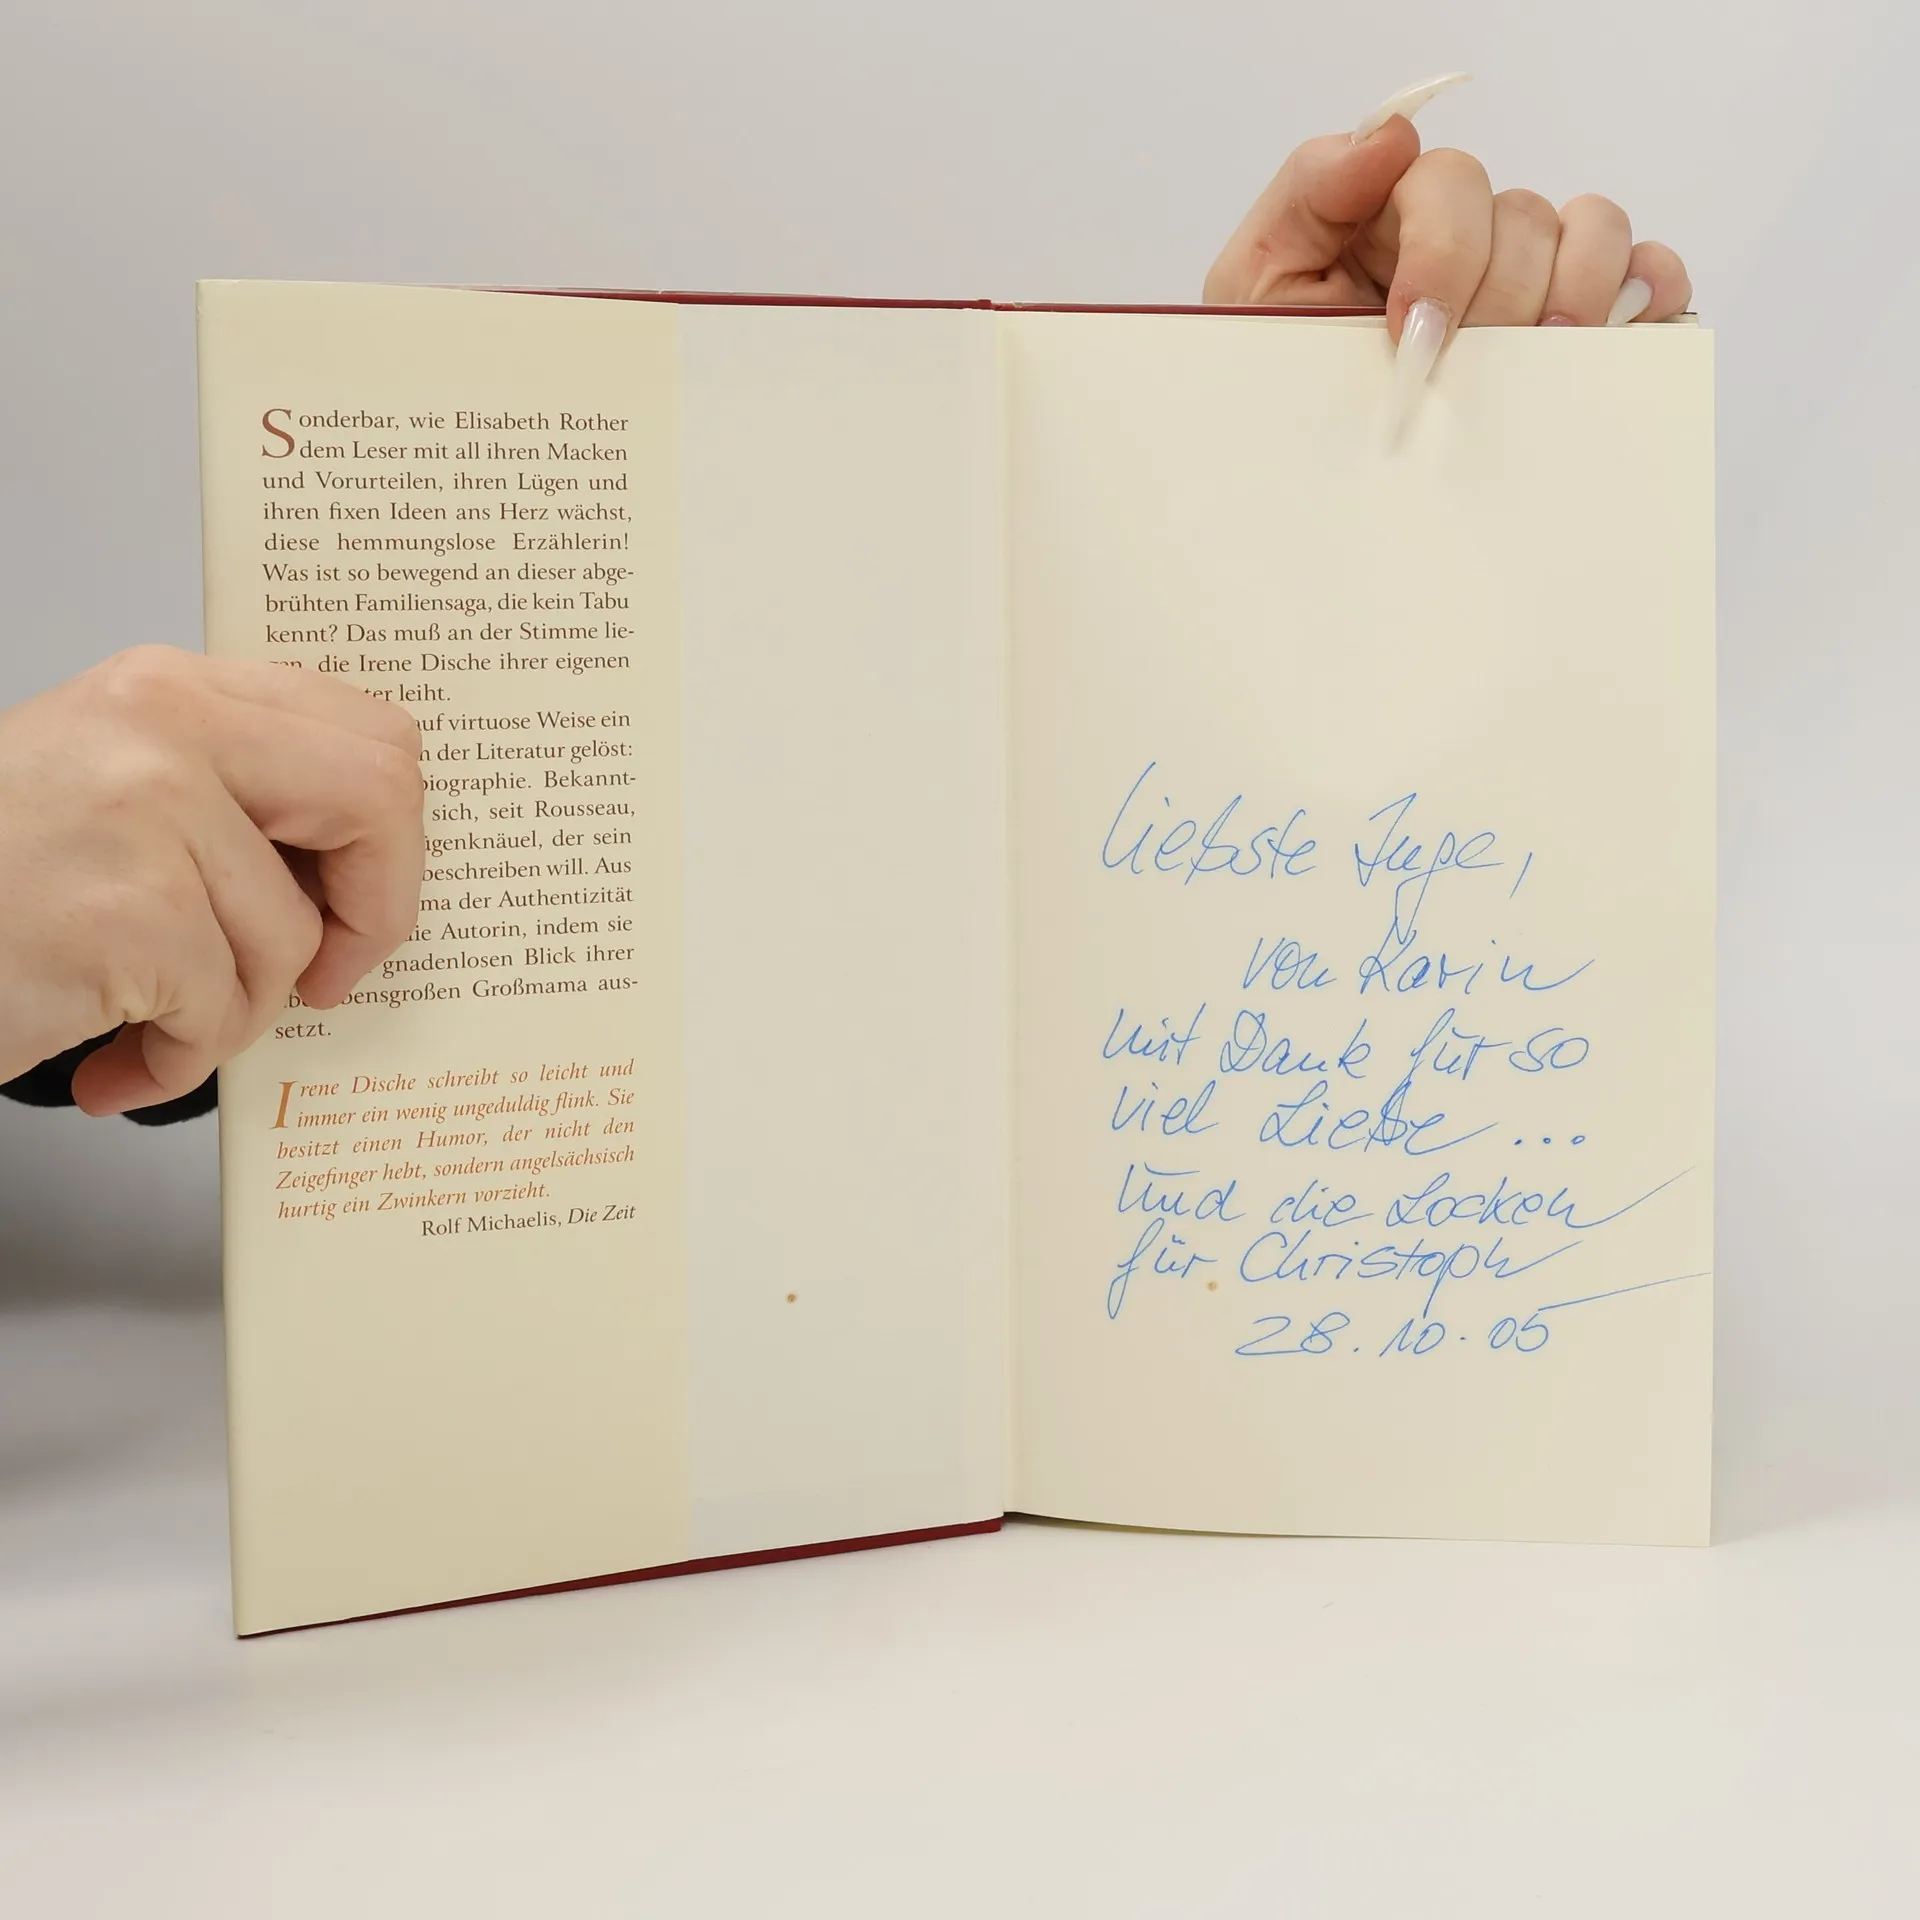 Sonderbar, wie Elisabeth Rother
dem Leser mit all ihren Macken
und Vorurteilen, ihren Lügen und
ihren fixen Ideen ans Herz wächst,
diese hemmungslose Erzählerin!
Was ist so bewegend an dieser abge-
brühten Familiensaga, die kein Tabu
kennt? Das muß an der Stimme lie-
die Irene Dische ihrer eigenen
leiht.
auf virtuose Weise ein
der Literatur gelöst:
Bekannt-
sich, seit Rousseau,
der sein
beschreiben will. Aus
der Authentizität
die Autorin, indem sie
gnadenlosen Blick ihrer
Großmama aus-
setzt.
Irene Dische schreibt so leicht und
immer ein wenig ungeduldig flink. Sie
besitzt einen Humor, der nicht den
Zeigefinger hebt, sondern angelsächsisch
hurtig ein Zwinkern vorzieht.
Rolf Michaelis, Die Zeit
Liebste Inge,
von Karin
mit Dank für so
viel Liebe ...
Und die Locken
für Christoph
28.10.05